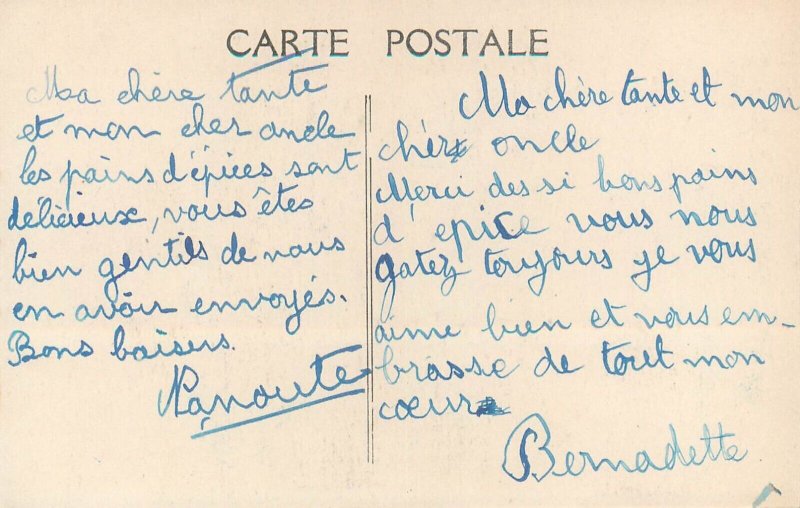 CARTE POSTALE
Ma chère tante
et mon cher oncle
les pains d'épices sont
délicieux, vous êtes
bien gentils de nous
en avoir envoyés.
Bons baisers.
Nanoute
Ma chère tante et mon
chèr oncle
Merci des si bons pains
d'épice vous nous
gatez toujours je vous
aime bien et vous em-
brasse de tout mon
cœur
Bernadette